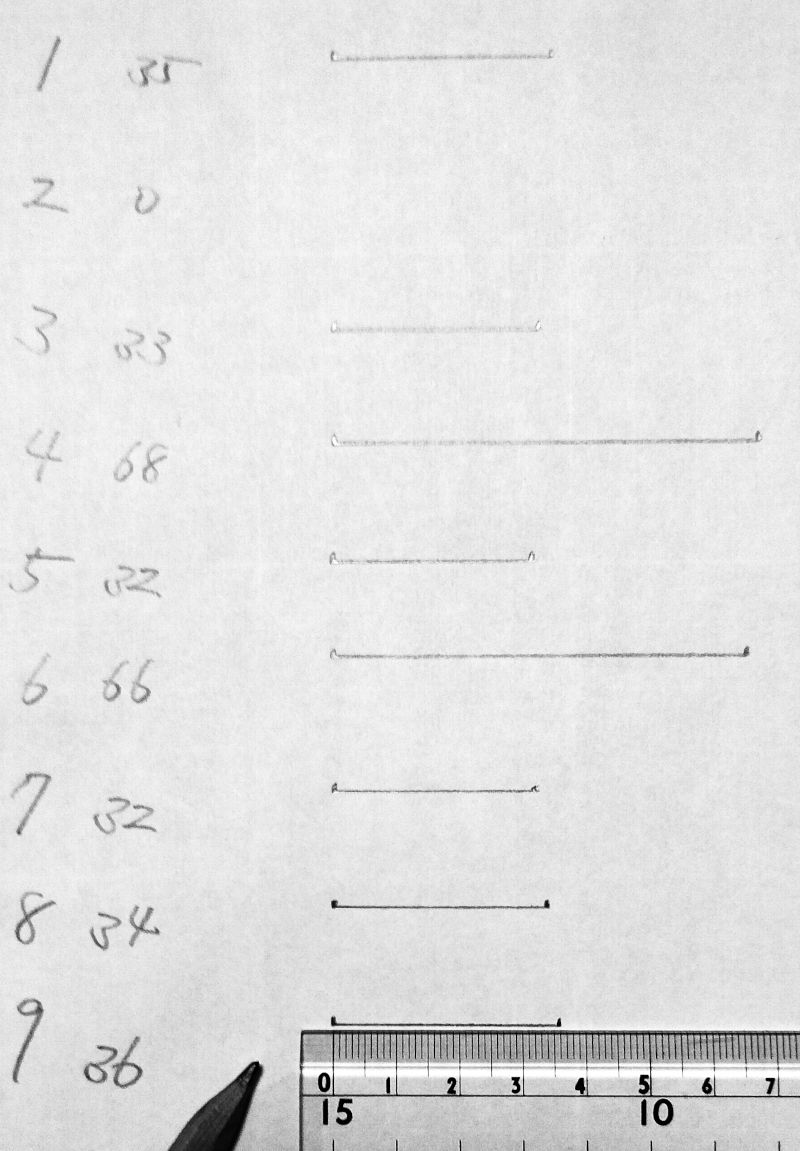 1 35
2 0
3 33
4 68
5 32
6 66
7 32
8 34
9 36
0 1 2 3 4 5 6 7
15 10